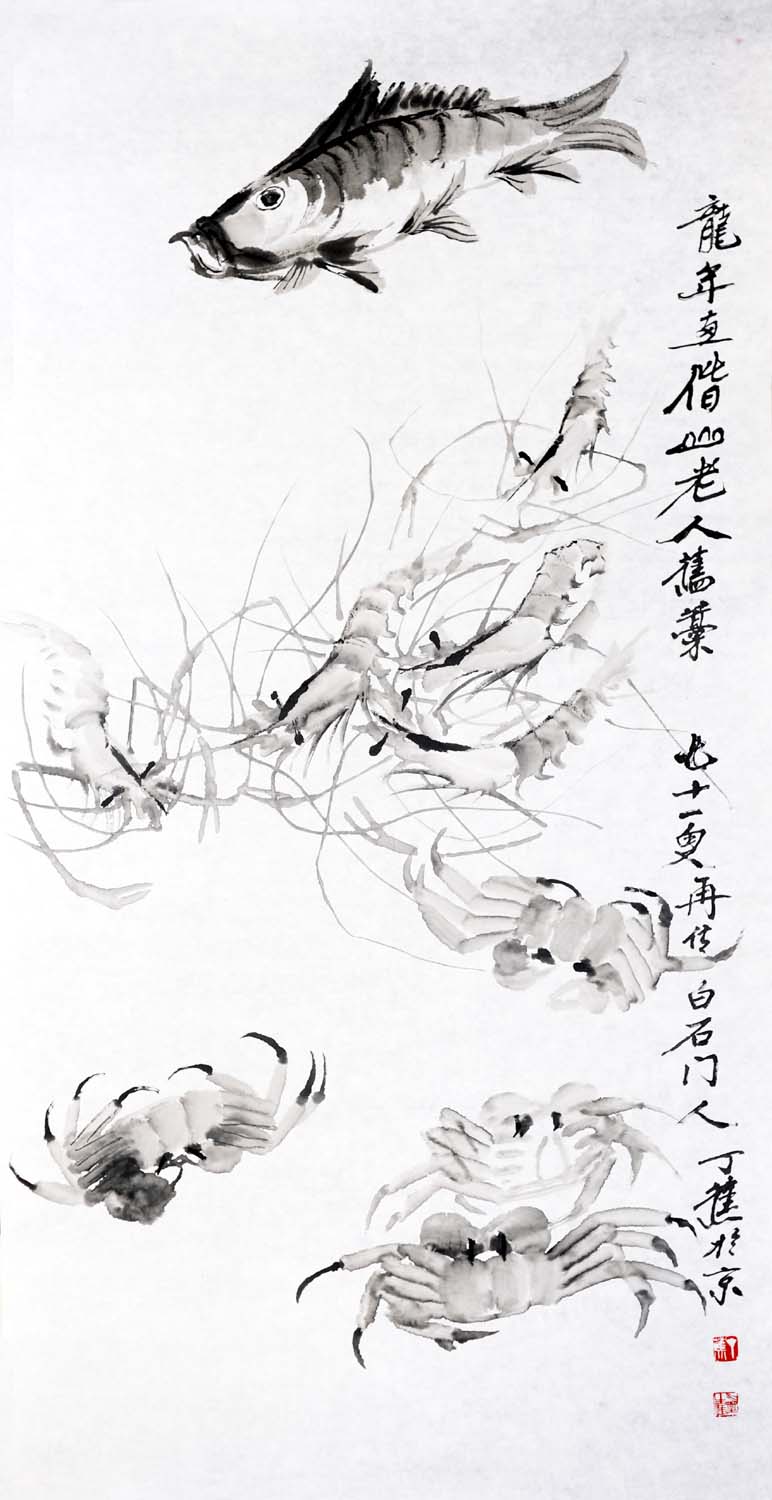 龍年画借山老人舊藁 七十一叟再传白石门人丁蕉於京